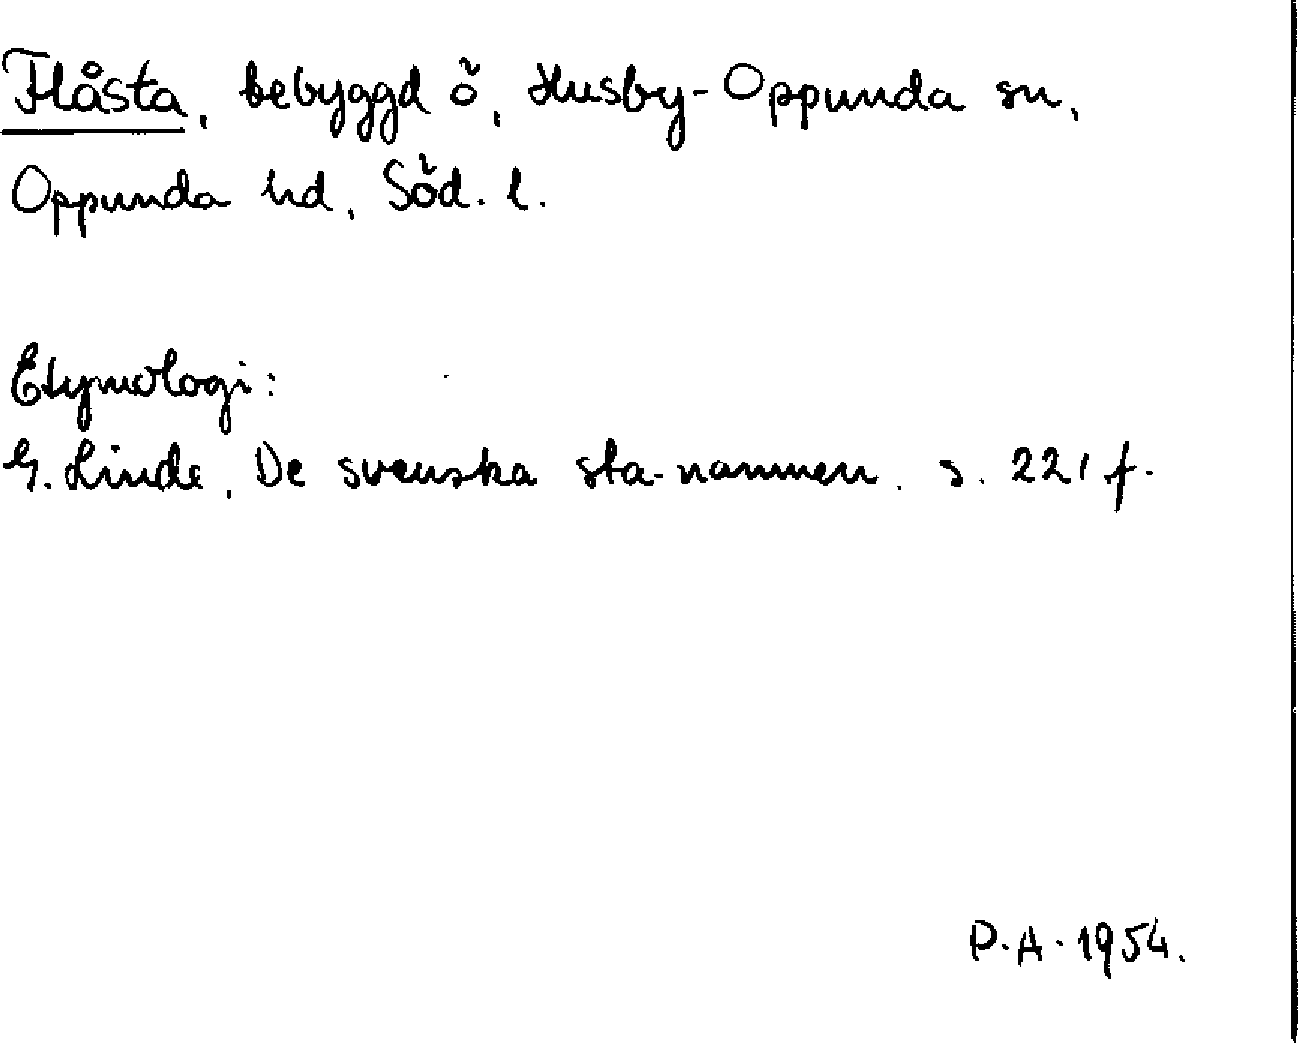 Flåsta, bebyggd ö, Husby-Oppunda sn,
Oppunda hd, Söd. l.
Etymologi:
G. Linde, De svenska sta-namnen. s. 221 f.
P.A. 1954.